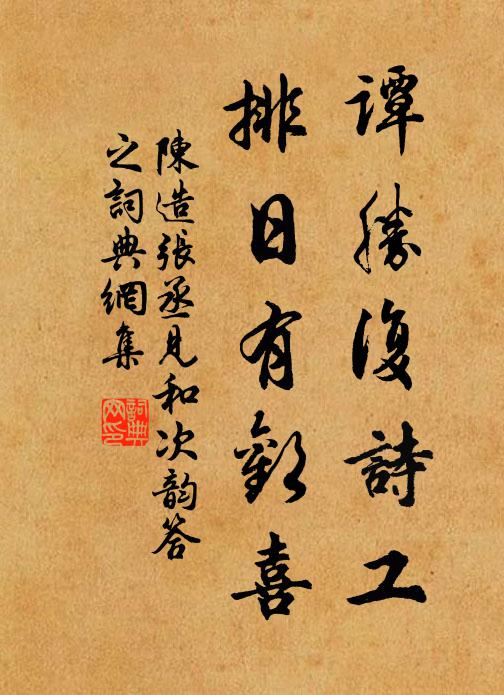 譚勝復詩工
排日有歡喜
陳造張丞見和次韵答
之詞典網集
詞典
网印